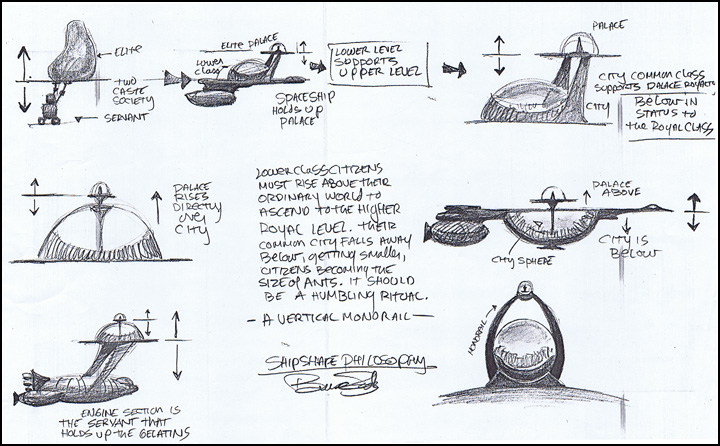 ELITE
TWO
CASTE
SOCIETY
SERVANT
ELITE PALACE
LOWER
CLASS
SPACESHIP
HOLDS UP
PALACE
LOWER LEVEL
SUPPORTS
UPPER LEVEL
PALACE
CITY COMMON CLASS
SUPPORTS PALACE ROYALTY
CITY
BELOW IN
STATUS TO
THE ROYAL CLASS
PALACE
RISES
DIRECTLY
OVER
CITY
LOWER CLASS CITIZENS
MUST RISE ABOVE THEIR
ORDINARY WORLD TO
ASCEND TO THE HIGHER
ROYAL LEVEL. THEIR
COMMON CITY FALLS AWAY
BELOW, GETTING SMALLER,
CITIZENS BECOMING THE
SIZE OF ANTS. IT SHOULD
BE A HUMBLING RITUAL.
- A VERTICAL MONORAIL -
SHIPSHAPE PHILOSOPHY
PALACE
ABOVE
CITY SPHERE
CITY IS
BELOW
MONORAIL
ENGINE SECTION IS
THE SERVANT THAT
HOLDS UP THE GELATINS